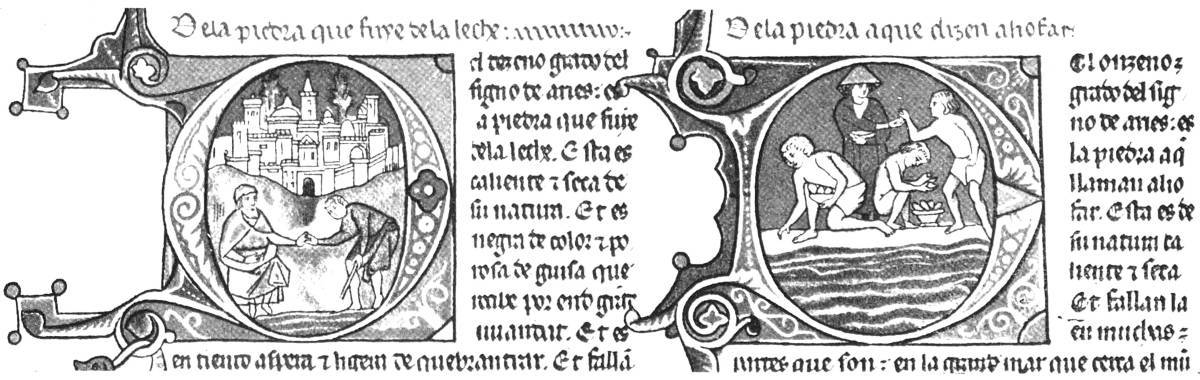 De la piedra que fuye de la leche:
el dezeno grado del
signo de aries: es
a piedra que fuye
de la leche. Esta es
caliente ⁊ seca de
su natura. Et es
negra de color ⁊ po
rosa de guisa que
uiandar. Et es
en tiento aspera ⁊ ligera de quebrantar. Et falla
De la piedra a que dizen aliofar.
El onzeno
grado del sig
no de aries: es
la piedra a q̃
llaman alio
far. Esta es de
su natura ca
liente ⁊ seca
Et fallan la
en muchas
que son: en la grand mar que cerca el mũ